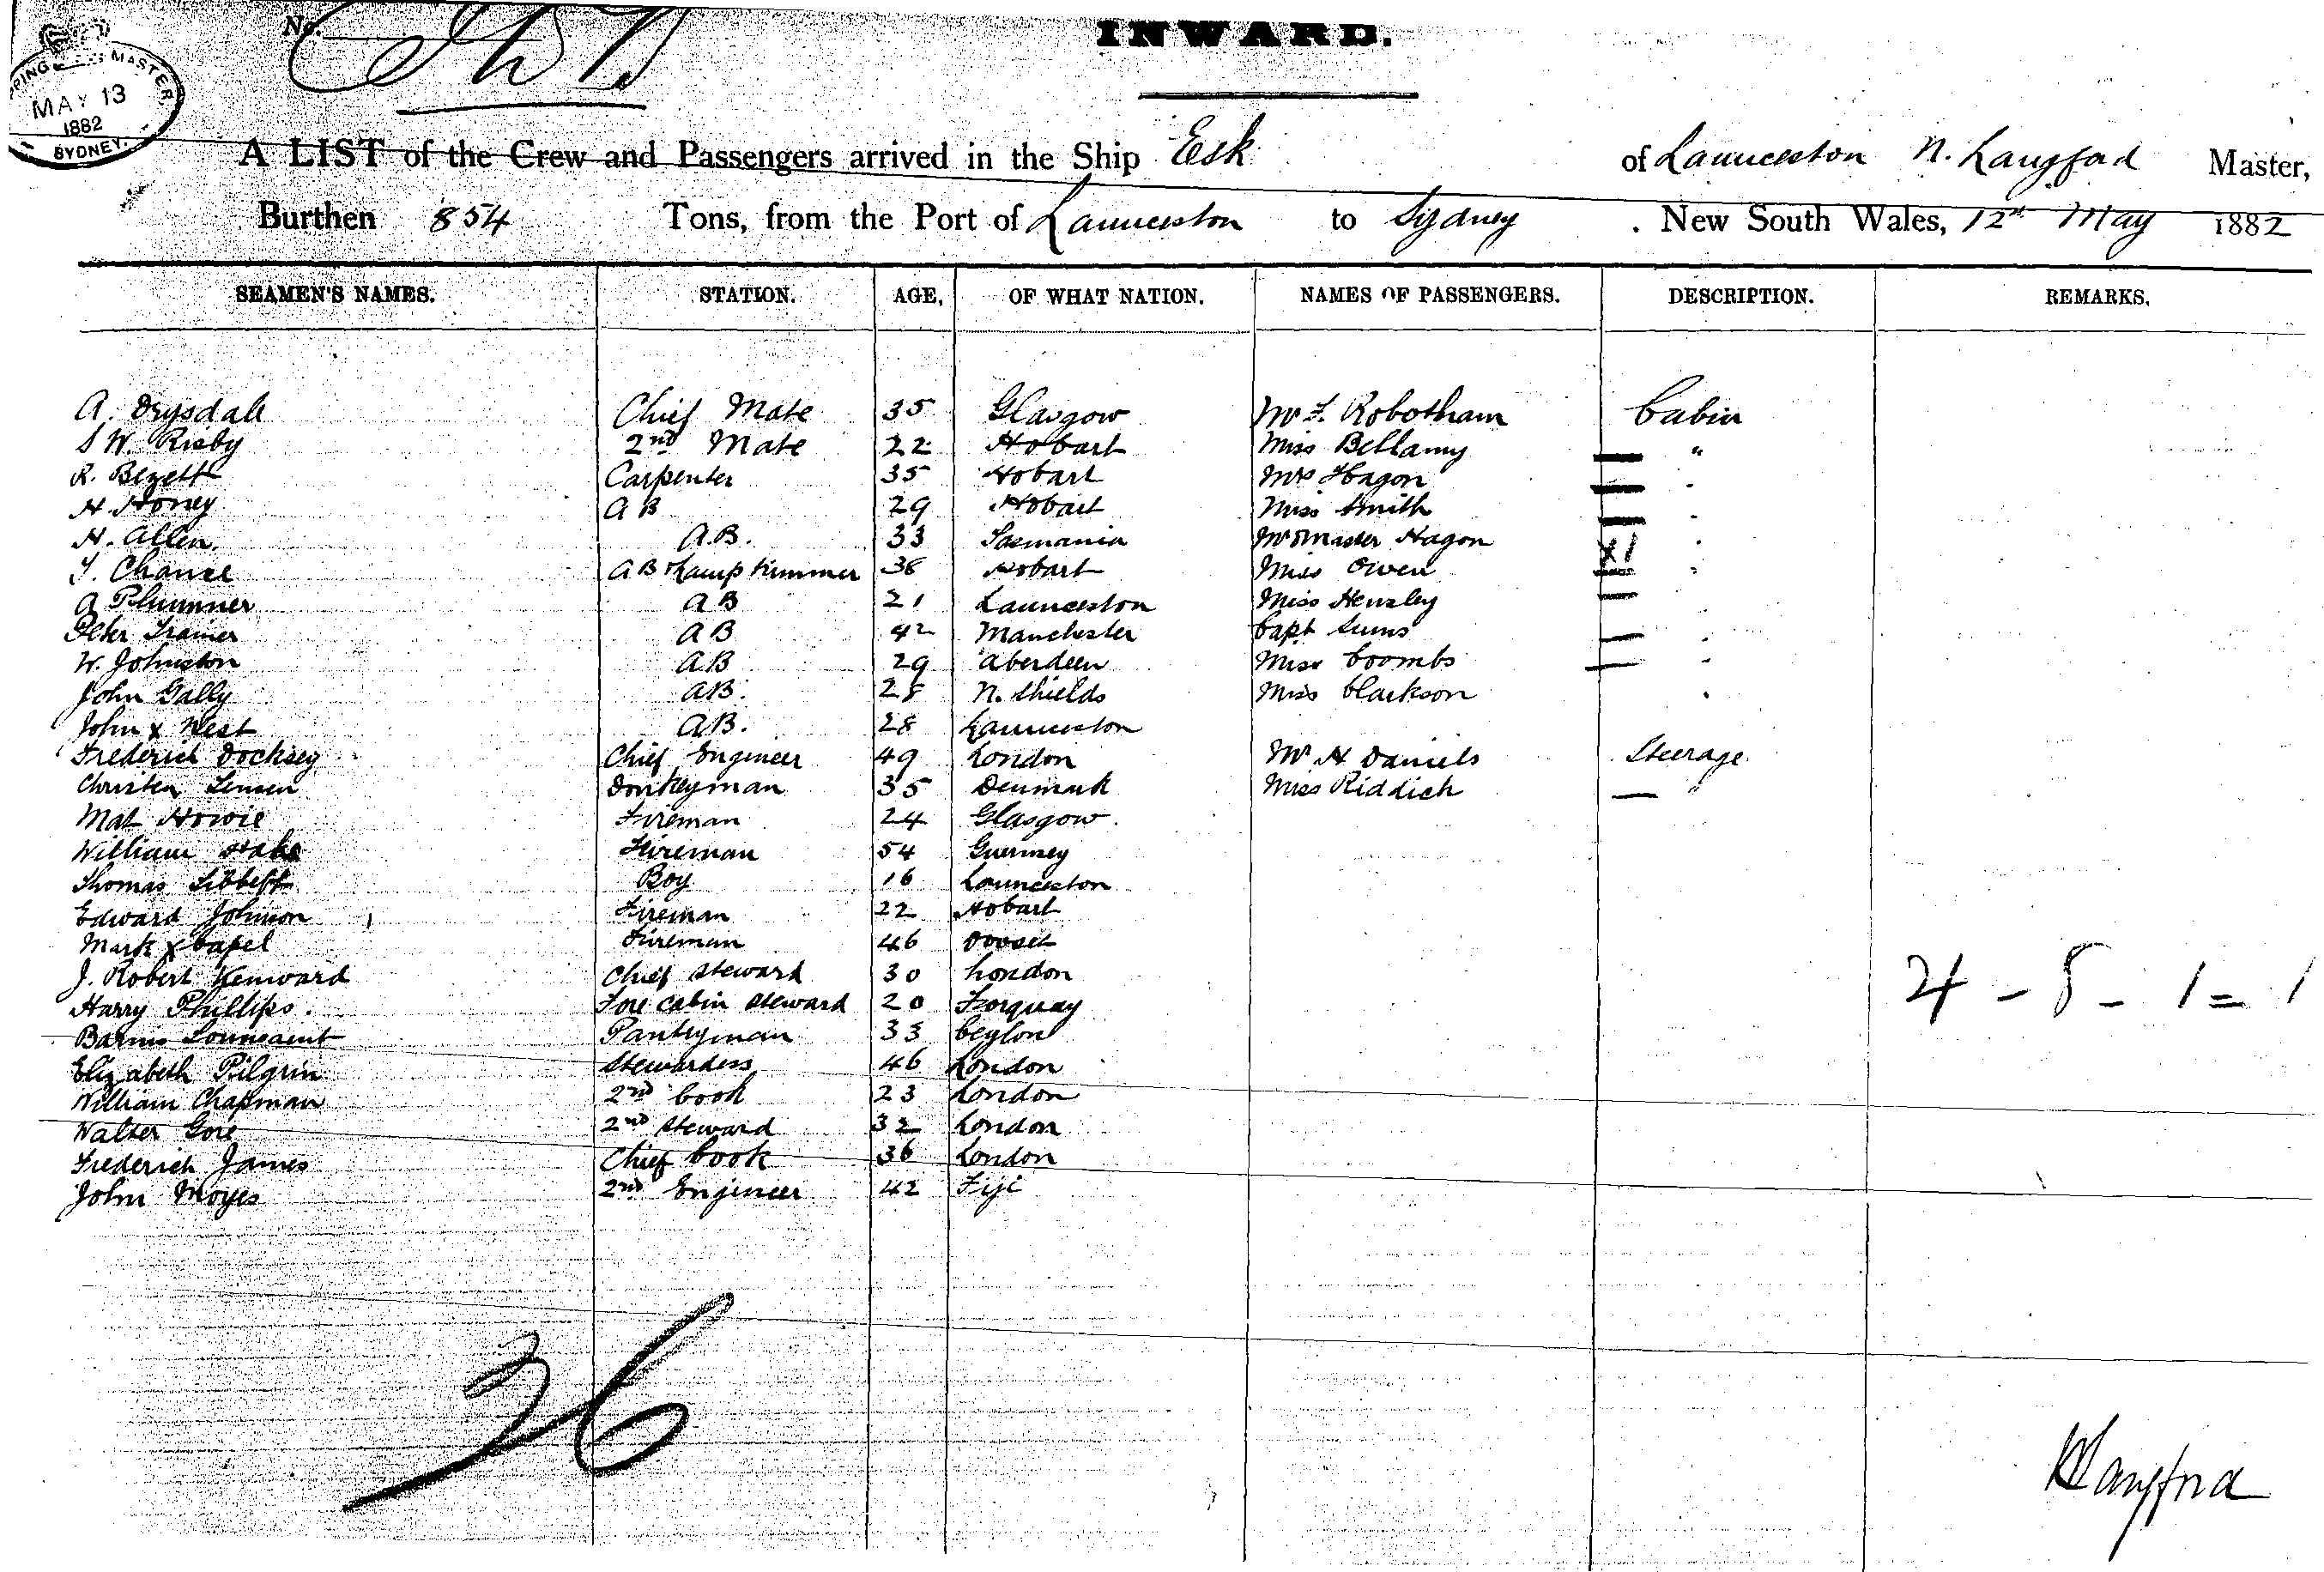 No.
INWARD.
SHIPPING MASTER
MAY 13
1882
SYDNEY.
A LIST of the Crew and Passengers arrived in the Ship Esk of Launceston N. Langford Master,
Burthen 854 Tons, from the Port of Launceston to Sydney . New South Wales, 12th May 1882
SEAMEN'S NAMES. STATION. AGE. OF WHAT NATION. NAMES OF PASSENGERS. DESCRIPTION. REMARKS.
A. Drysdale Chief Mate 35 Glasgow Mr F. Robotham Cabin
S W. Risby 2nd Mate 22 Hobart Miss Bellamy "
R. Bezett Carpenter 35 Hobart Mrs Hagon
H. Honey A B 29 Hobart Miss Smith
H. Allen. A.B. 33 Tasmania Master Hagon X1
T. Chance A B & Lamp trimmer 38 Hobart Miss Owen
A Plummer A B 21 Launceston Miss Hensley
Peter Trainer A B 42 Manchester Capt Sums
W. Johnston A B 29 Aberdeen Miss Coombs
John Gally A B. 28 N. Shields Miss Clarkson
John x West A.B. 28 Launceston
Frederich Docksey Chief Engineer 49 London Mr H Daniels Steerage
Christen Jensen Donkeyman 35 Denmark Miss Riddich "
Mat Howie Fireman 24 Glasgow.
William Fireman 54 Guernsey
Thomas Tibbett Boy 16 Launceston
Edward Johnson Fireman 22 Hobart
Mark x Capel Fireman 46 Dorset
J. Robert Kenward Chief Steward 30 London
4 - 8 - 1 = 1
Harry Phillips. Fore Cabin Steward 20 Torquay
Barnis Tounsaint Pantryman 33 Ceylon
Elizabeth Pilgrim Stewardess 46 London
William Chapman 2nd Cook 23 London
Walter Gore 2nd Steward 32 London
Frederich James Chief Cook 36 London
John Moyes 2nd Engineer 42 Fiji
26
N Langford